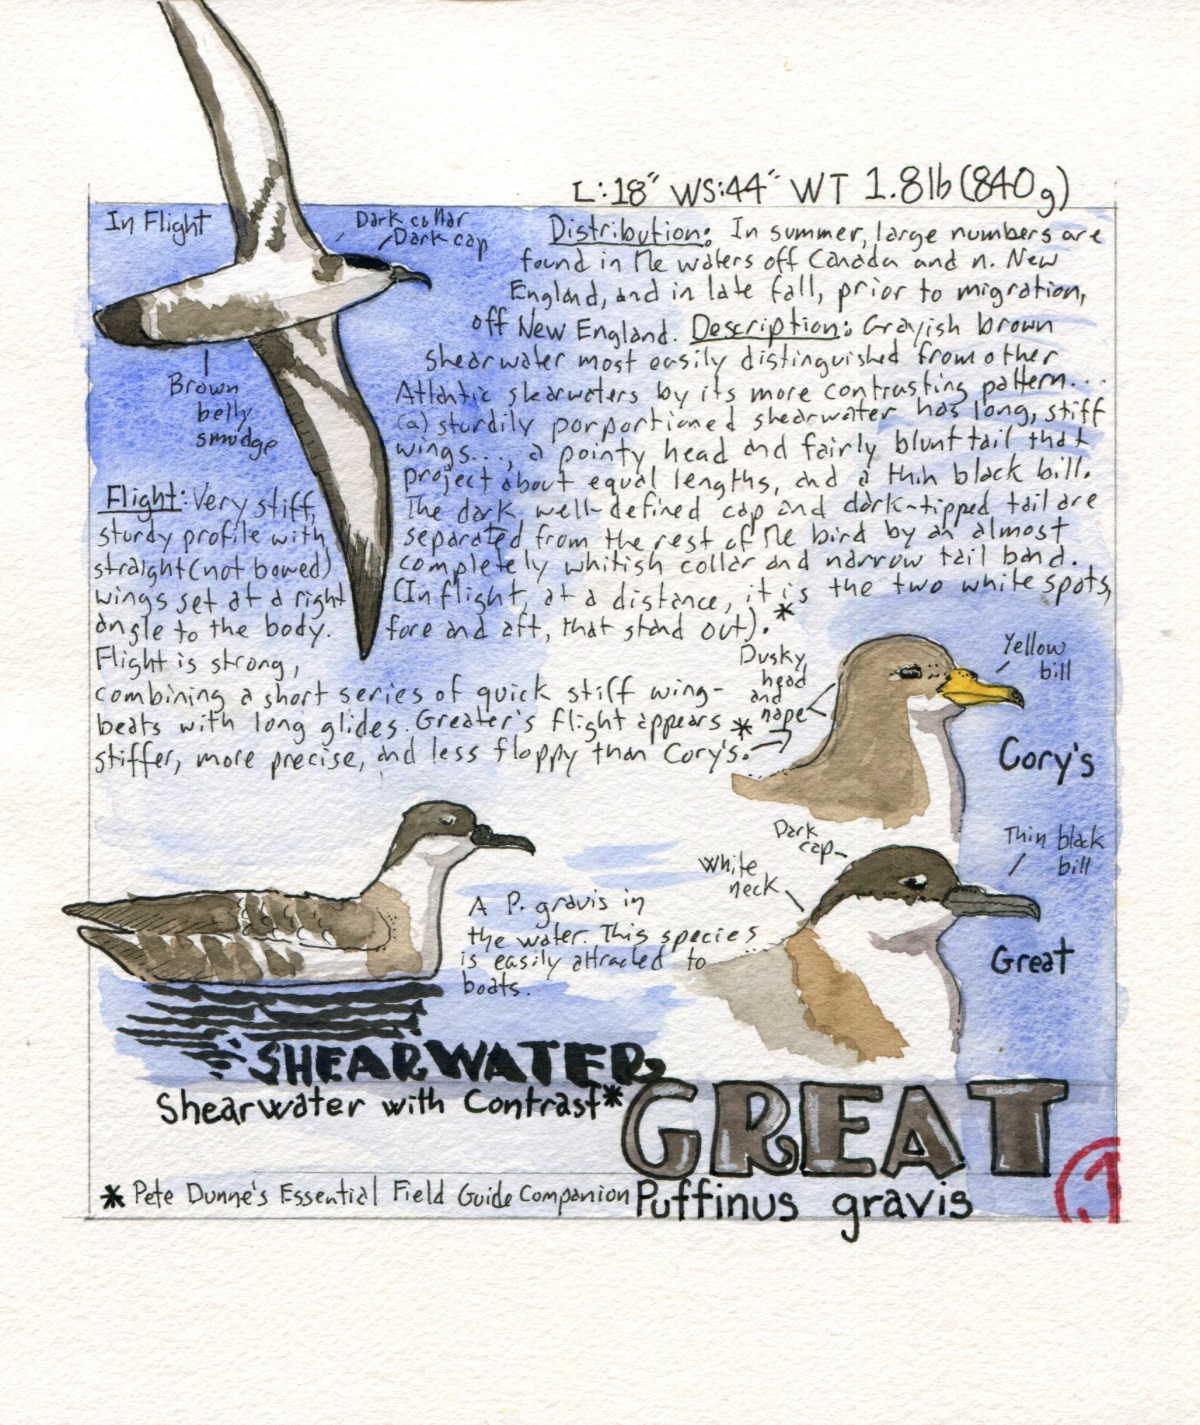 L:18" WS:44" WT 1.8lb (840g)
In Flight
Dark collar
Dark cap
Brown
belly
smudge
Distribution: In summer, large numbers are
found in the waters off Canada and n. New
England, and in late fall, prior to migration,
off New England. Description: Grayish brown
shearwater most easily distinguished from other
Atlantic shearwaters by its more contrasting pattern...
(a) sturdily porportioned shearwater has long, stiff
wings..., a pointy head and fairly blunt tail that
project about equal lengths, and a thin black bill.
The dark well-defined cap and dark-tipped tail are
separated from the rest of the bird by an almost
completely whitish collar and narrow tail band.
(In flight, at a distance, it is the two white spots,
fore and aft, that stand out).*
Flight: Very stiff,
sturdy profile with
straight (not bowed)
wings set at a right
angle to the body.
Flight is strong,
combining a short series of quick stiff wing-
beats with long glides. Greater's flight appears
stiffer, more precise, and less floppy than Cory's.*
Dusky
head
and
nape
Yellow
bill
Cory's
Dark
cap
White
neck
Thin black
bill
Great
A P. gravis in
the water. This species
is easily attracted to
boats.
SHEARWATER,
GREAT
Shearwater with Contrast*
* Pete Dunne's Essential Field Guide Companion
Puffinus gravis